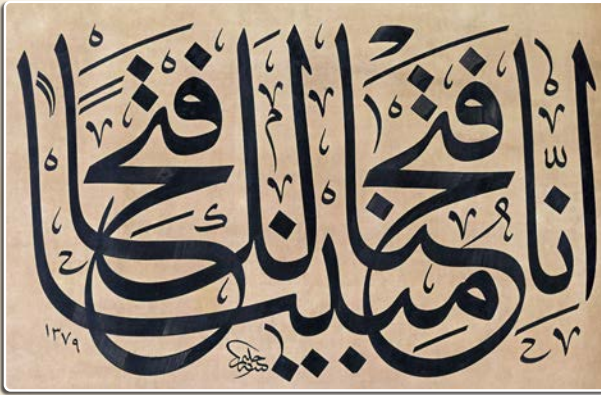 اِنَّا فَتَحْنَا لَكَ فَتْحًا مُبِينًا
١٣٧٩